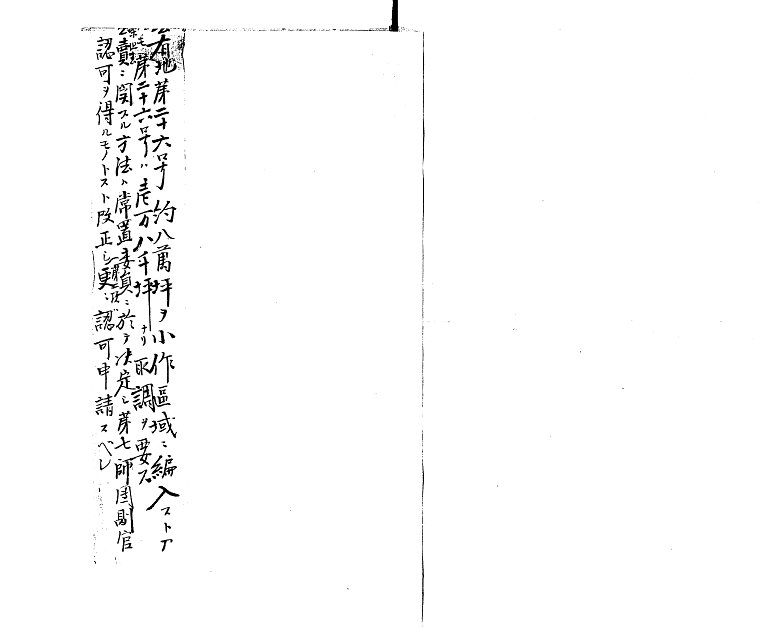 有地第二十六号約八萬坪ヲ小作區域ニ編入ストア
モ第二十六号ハ壱万八千坪ナリ取調ヲ要ス
賣ニ関スル方法ハ常置委員ニ於テ決定シ第七師団副官
認可ヲ得ルモノトスト改正シ更ニ認可申請スベシ